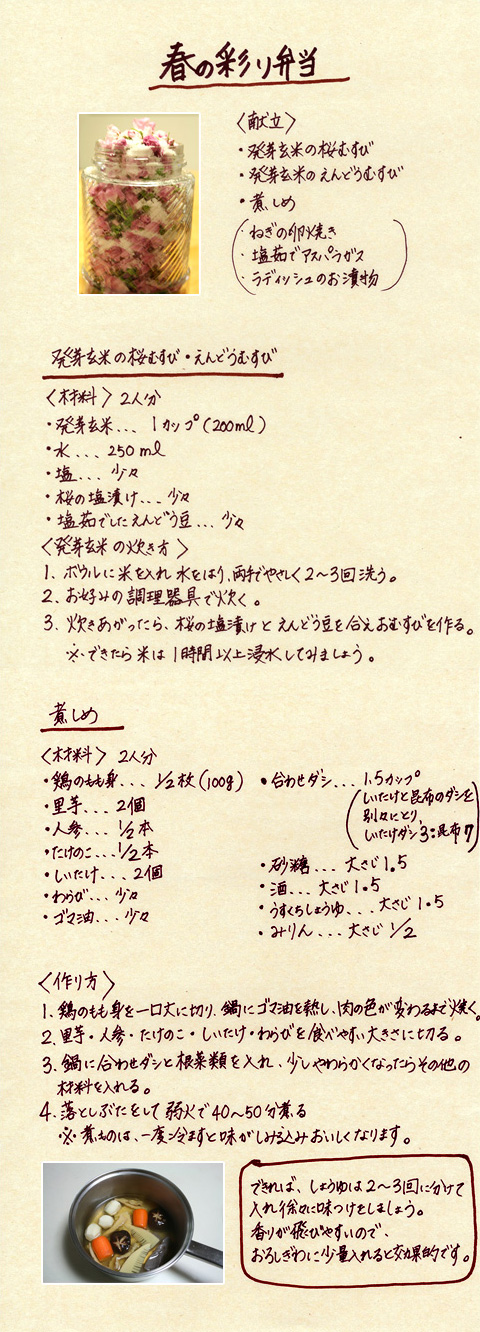 春の彩り弁当
〈献立〉
・発芽玄米の桜むすび
・発芽玄米のえんどうむすび
・煮しめ
・ねぎの卵焼き
・塩茹でアスパラガス
・ラディッシュのお漬物
発芽玄米の桜むすび・えんどうむすび
〈材料〉2人分
・発芽玄米... 1カップ(200ml)
・水... 250ml
・塩... 少々
・桜の塩漬け... 少々
・塩茹でしたえんどう豆... 少々
〈発芽玄米の炊き方〉
1. ボウルに米を入れ水をはり、両手でやさしく2〜3回洗う。
2. お好みの調理器具で炊く。
3. 炊きあがったら、桜の塩漬けとえんどう豆を合えおむすびを作る。
※できたら米は1時間以上浸水してみましょう。
煮しめ
〈材料〉2人分
・鶏のもも身... 1/2枚(100g)
・里芋... 2個
・人参... 1/2本
・たけのこ... 1/2本
・しいたけ... 2個
・わらび... 少々
・ゴマ油... 少々
・合わせダシ... 1.5カップ
(しいたけと昆布のダシを
別々にとり、
しいたけダシ3:昆布7)
・砂糖... 大さじ1.5
・酒... 大さじ1.5
・うすくちしょうゆ... 大さじ1.5
・みりん... 大さじ1/2
〈作り方〉
1. 鶏のもも身を一口大に切り、鍋にゴマ油を熱し、肉の色が変わるまで焼く。
2. 里芋・人参・たけのこ・しいたけ・わらびを食べやすい大きさに切る。
3. 鍋に合わせダシと根菜類を入れ、少しやわらかくなったらその他の
材料を入れる。
4. 落としぶたをして弱火で40〜50分煮る
※煮ものは、一度冷ますと味がしみ込みおいしくなります。
できれば、しょうゆは2〜3回に分けて
入れ徐々に味つけをしましょう。
香りが飛びやすいので、
おろしぎわに少量入れると効果的です。